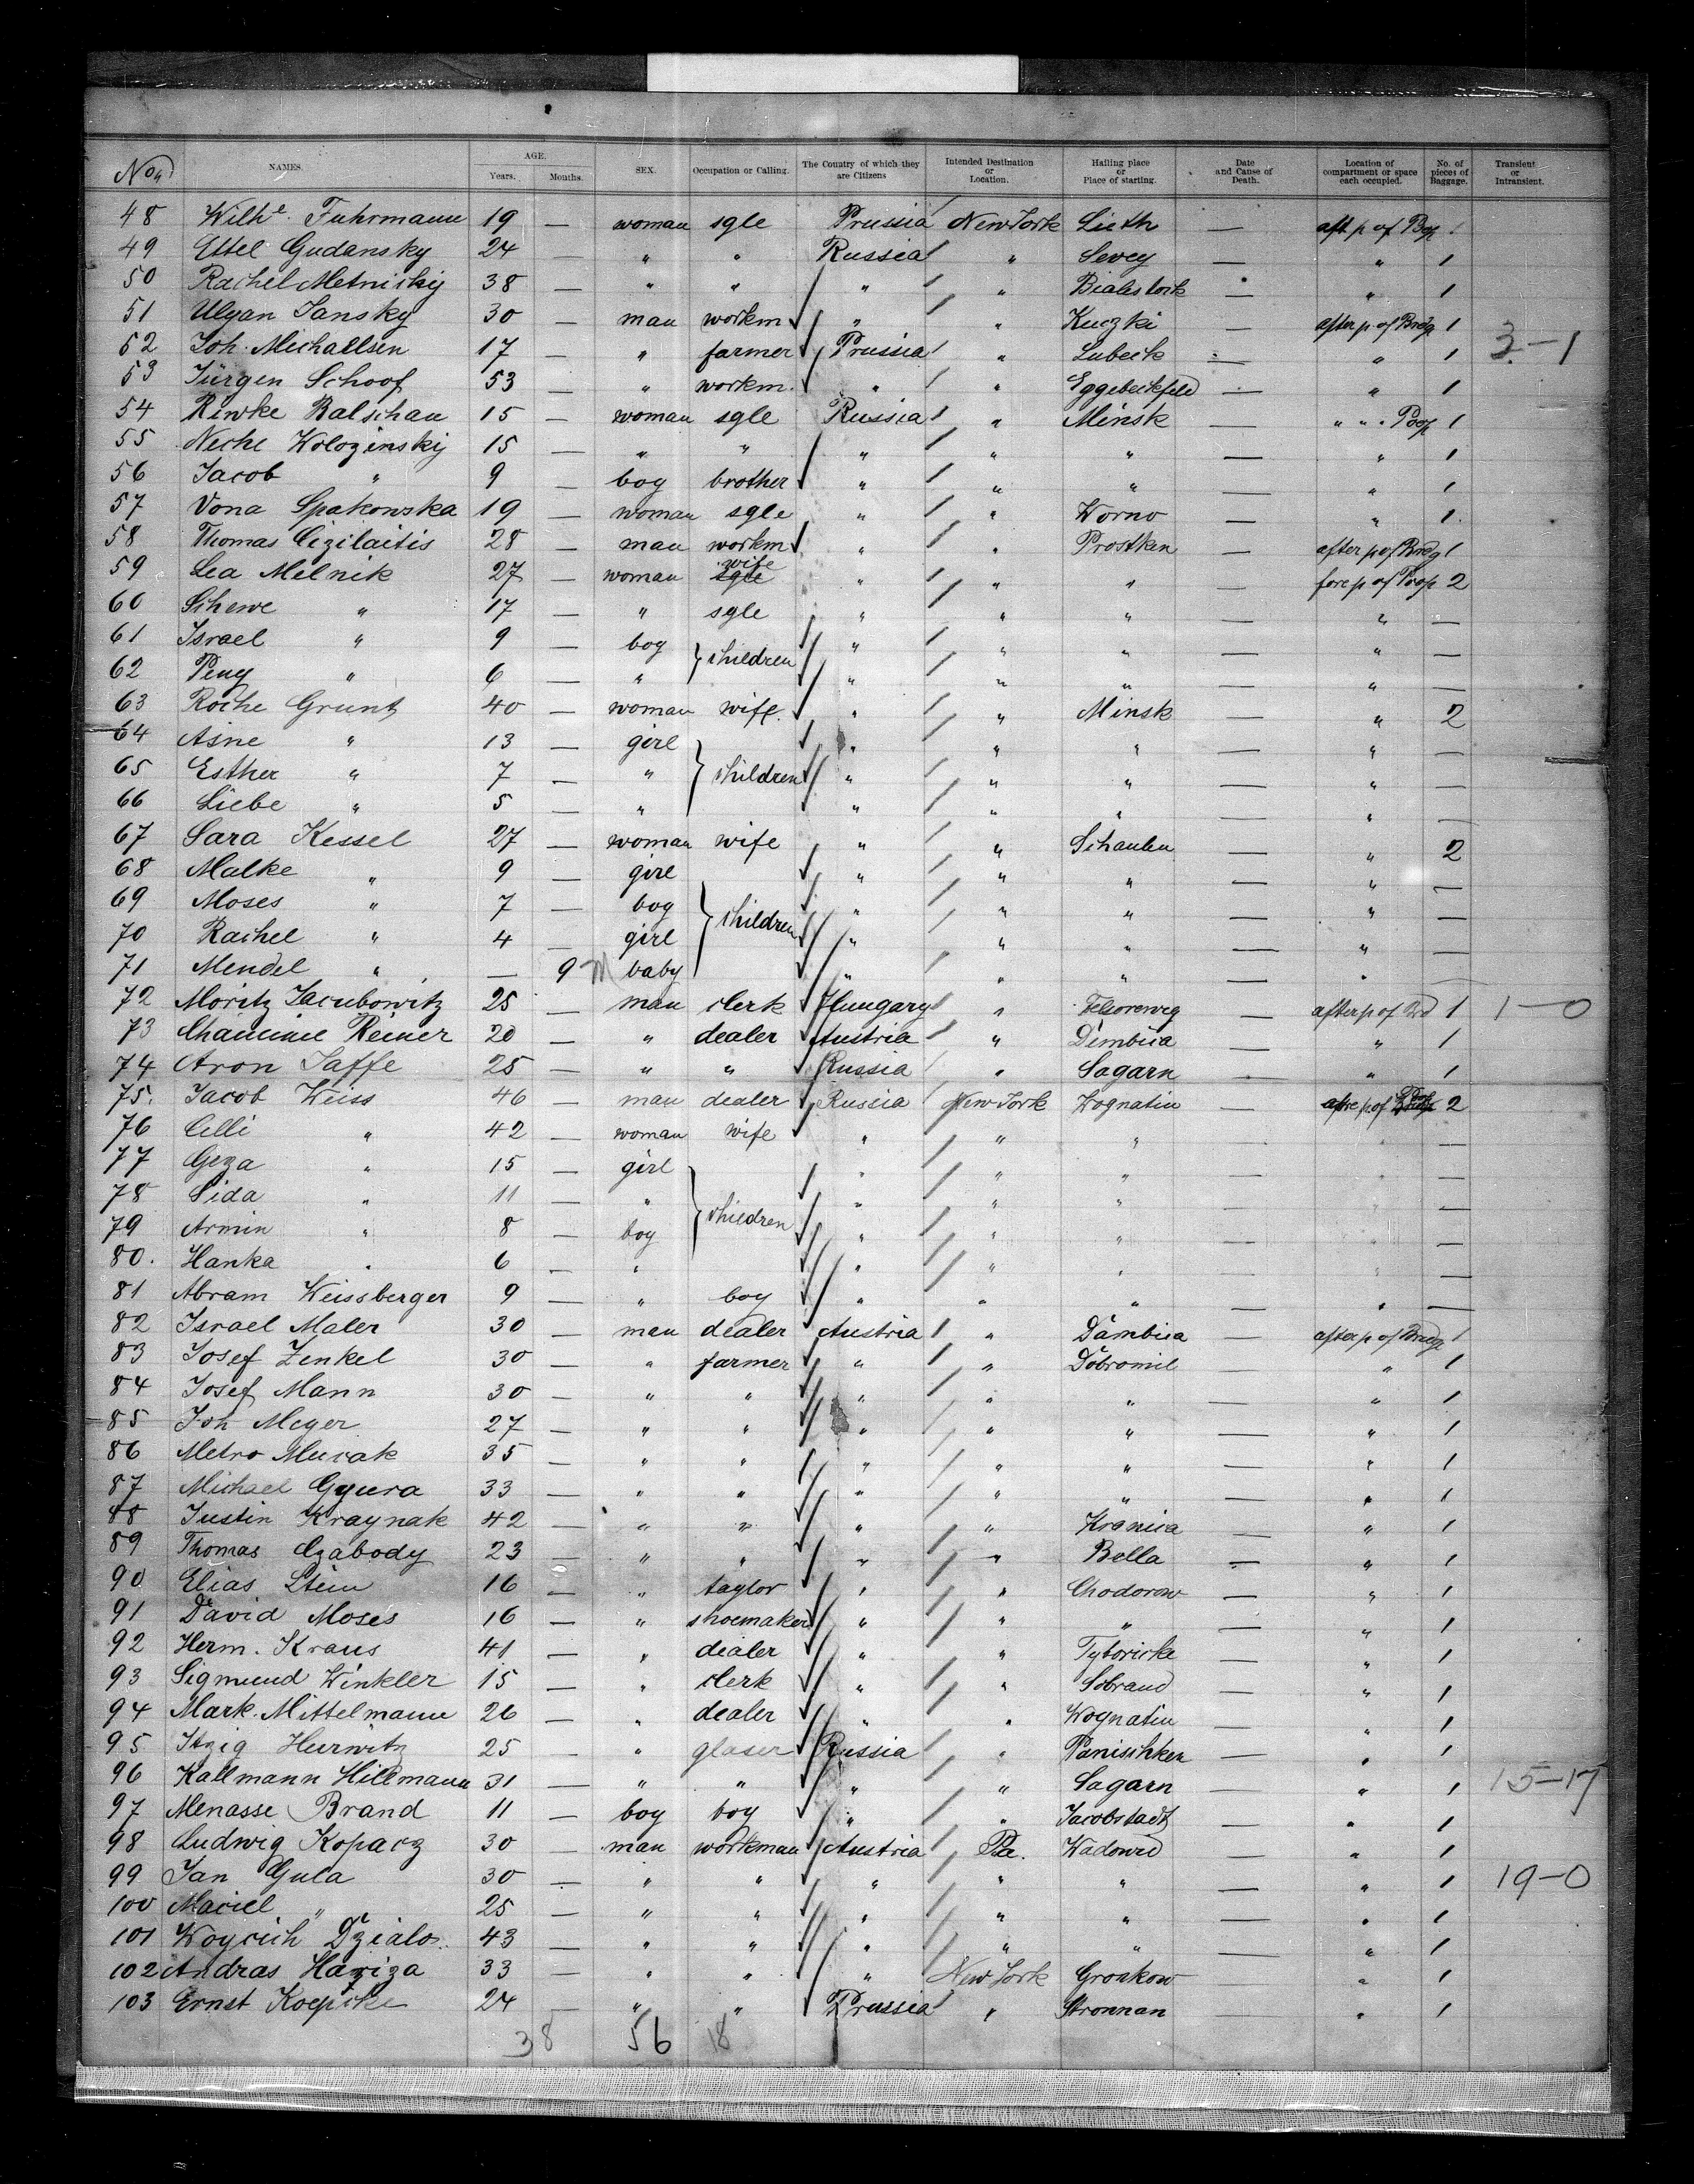 No. NAMES. AGE. Years. Months. SEX. Occupation or Calling. The Country of which they are Citizens Intended Destination or Location. Hailing place or Place of starting. Date and Cause of Death. Location of compartment or space each occupied. No. of pieces of Baggage. Transient or Intransient.
48 Wilhe. Fuhrmann 19 woman sgle Prussia New York Lieth — aft p of Poop 1
49 Ettel Gudansky 24 — " " Russia " Sevey — " 1
50 Rachel Metniskij 38 — " " " " Bialistock — " 1
51 Ulyan Jansky 30 — man workm " " Kuczki — after p of Bredg 1
52 Joh. Michaelsen 17 — " farmer Prussia " Lubeck — " 1 3-1
53 Jürgen Schoof 53 — " workm. " " Eggebeckfeld — " 1
54 Riwke Balschau 15 — woman sgle Russia " Minsk — " " " Poop 1
55 Neche Wolozinskij 15 — " " " " " — " 1
56 Jacob " 9 — boy brother " " " — " 1
57 Vona Spakowska 19 — woman sgle " " Worno — " 1
58 Thomas Cizilaitis 28 — man workm " " Prostken — after p of Bredg 1
59 Lea Melnik 27 — woman wife " " " — fore p of Poop 2
60 Schewe " 17 — " sgle " " " — " —
61 Israel " 9 — boy children " " " — " —
62 Peny " 6 — " " " " — " —
63 Roche Grunt 40 — woman wife. " " Minsk — " 2
64 Asne " 13 — girl " " " — " —
65 Esther " 7 — " children " " " — " —
66 Liebe " 5 — " " " " — " —
67 Sara Kessel 27 — woman wife " " Schaulen — " 2
68 Malke " 9 — girl " " " — " —
69 Moses " 7 — boy children " " " — " —
70 Rachel " 4 — girl " " " — " —
71 Mendel " — 9 M baby " " " — "
72 Moritz Jacubowitz 25 — man clerk Hungary " — after p of Brd 1 1-0
73 Reiner 20 — " dealer Austria " Dembica — " 1
74 Aron Jaffe 25 — " " Russia " Sagarn — " 1
75. Jacob Weiss 46 — man dealer Russia New York Wognatin — p of Poop 2
76 Celli " 42 — woman wife " " " — —
77 Geza " 15 — girl " " " — —
78 Sida " 11 — " children " " " — —
79 Armin " 8 — boy " " " — —
80. Hanka " 6 — " " " " — —
81 Abram Weissberger 9 — " boy " " " — " —
82 Israel Maler 30 — man dealer Austria " Dambica — after p of Bredg 1
83 Josef Zenkel 30 — " farmer " " Dobromil — " 1
84 Josef Mann 30 — " " " " " — " 1
85 Joh Meyer 27 — " " " " " — " 1
86 Metro Mucak 35 — " " " " " — " 1
87 Michael Gyura 33 — " " " " " — " 1
88 Justin Kraynak 42 — " " " " Kranica — " 1
89 Thomas Czabody 23 — " " " " Bella — " 1
90 Elias Stein 16 — " taylor " " Chodorow — " 1
91 David Moses 16 — " shoemaker " " " — " 1
92 Herm. Kraus 41 — " dealer " " Tyboricke — " 1
93 Sigmund Winkler 15 — " clerk " " Sobrand — " 1
94 Mark. Mittelmann 26 — " dealer " " Wognatin — " 1
95 Itzig Hurwitz 25 — " glaser Russia " Panischken — " 1
96 Kallmann Hillmann 31 — " " " " Sagarn — " 1 15-17
97 Menasse Brand 11 — boy boy " " Jacobstadt — " 1
98 Ludwig Koparz 30 — man workman Austria Pa. Wadowid — " 1
99 Jan Gula 30 — " " " " " — " 1 19-0
100 Maciel " 25 — " " " " " — " 1
101 Woycich Dzialo 43 — " " " " " — " 1
102 Andras Haziza 33 — " " " New York Gronkow — " 1
103 Ernst Koepcke 24 — " " Prussia " Stronnan — " 1
38 56 18